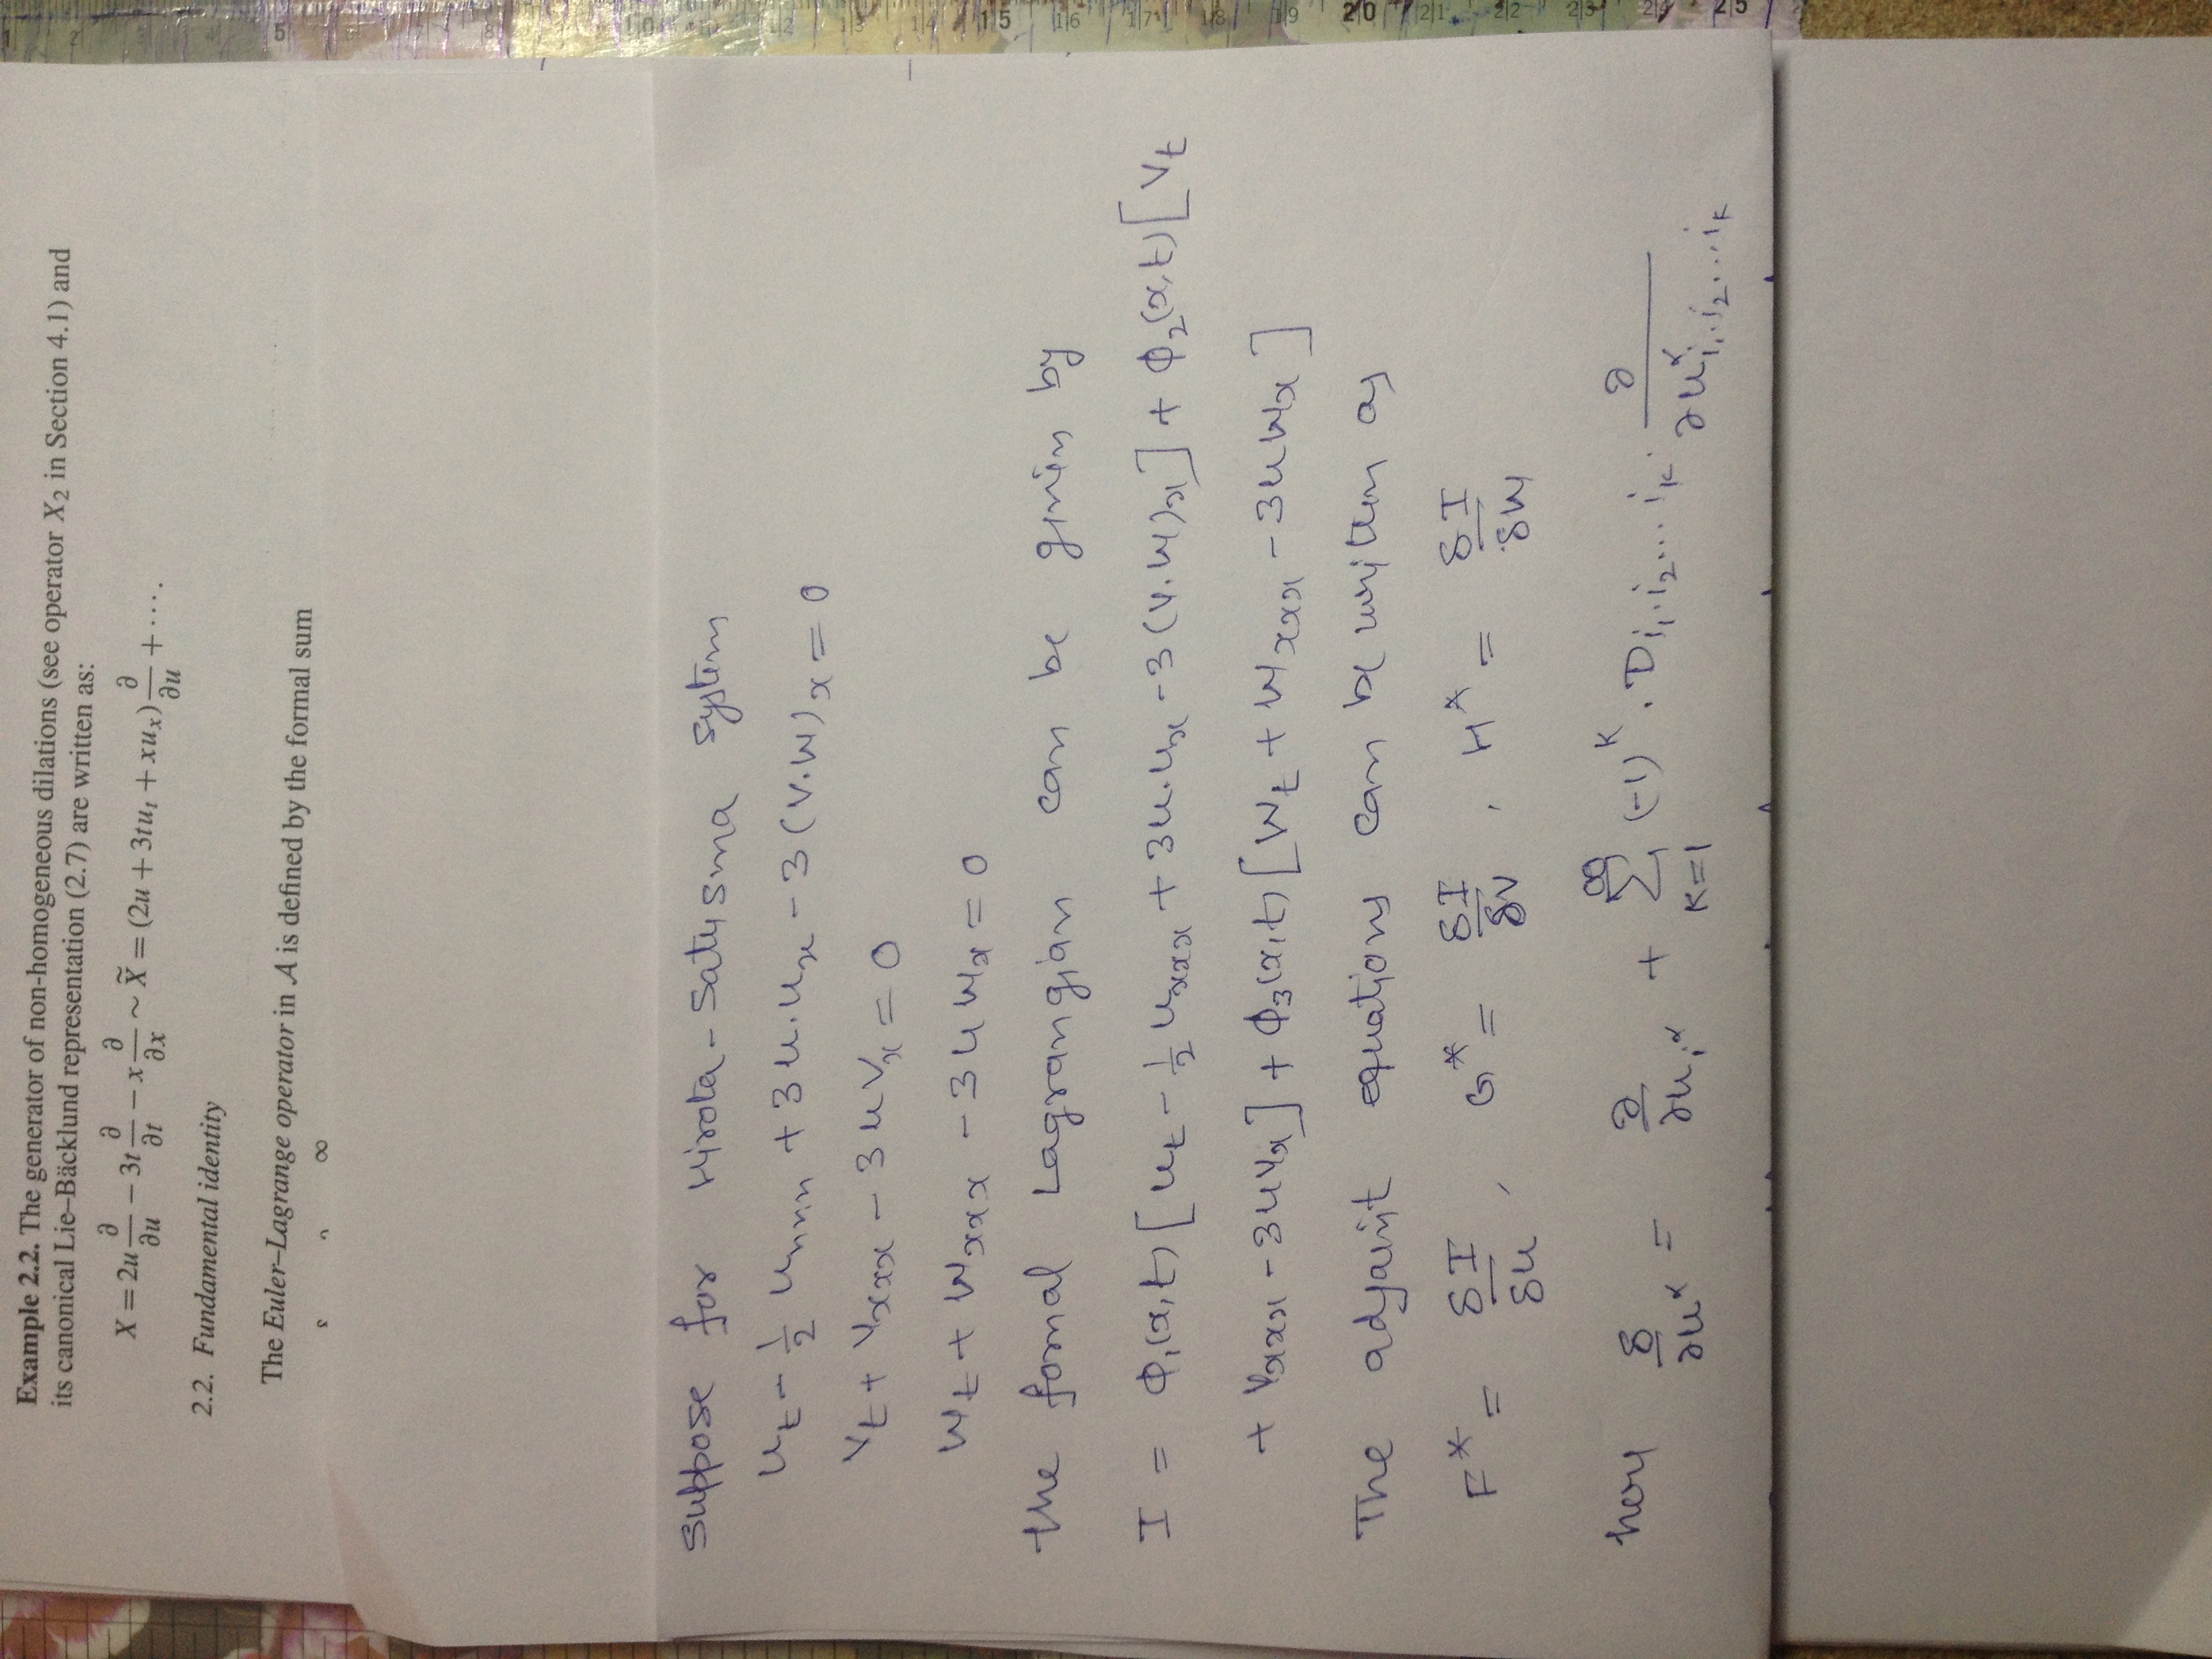 Example 2.2. The generator of non-homogeneous dilations (see operator X₂ in Section 4.1) and
its canonical Lie–Bäcklund representation (2.7) are written as:
X = 2u ∂/∂u − 3t ∂/∂t − x ∂/∂x ~ X̃ = (2u + 3tuₜ + xuₓ) ∂/∂u + ⋯.
2.2. Fundamental identity
The Euler–Lagrange operator in A is defined by the formal sum
∞
Suppose for Hirota-Satysma system
u_t - 1/2 u_xxx + 3u.u_x - 3(v.w)_x = 0
v_t + v_xxx - 3uv_x = 0
w_t + w_xxx - 3uw_x = 0
the formal Lagrangian can be given by
I = ϕ₁(x,t)[u_t - 1/2 u_xxx + 3u.u_x - 3(v.w)_x] + ϕ₂(x,t)[v_t
+ v_xxx - 3uv_x] + ϕ₃(x,t)[w_t + w_xxx - 3uw_x]
The adjoint equations can be written as
F* = δI/δu , G* = δI/δv , H* = δI/δw
here δ/∂u^α = ∂/∂u_i^α + ∑_{k=1}^{∞} (-1)^k . D_{i₁.i₂...i_k} . ∂/∂u^α_{i₁.i₂...i_k}
5 10 15 16 17 18 19 20 21 22 23 24 25